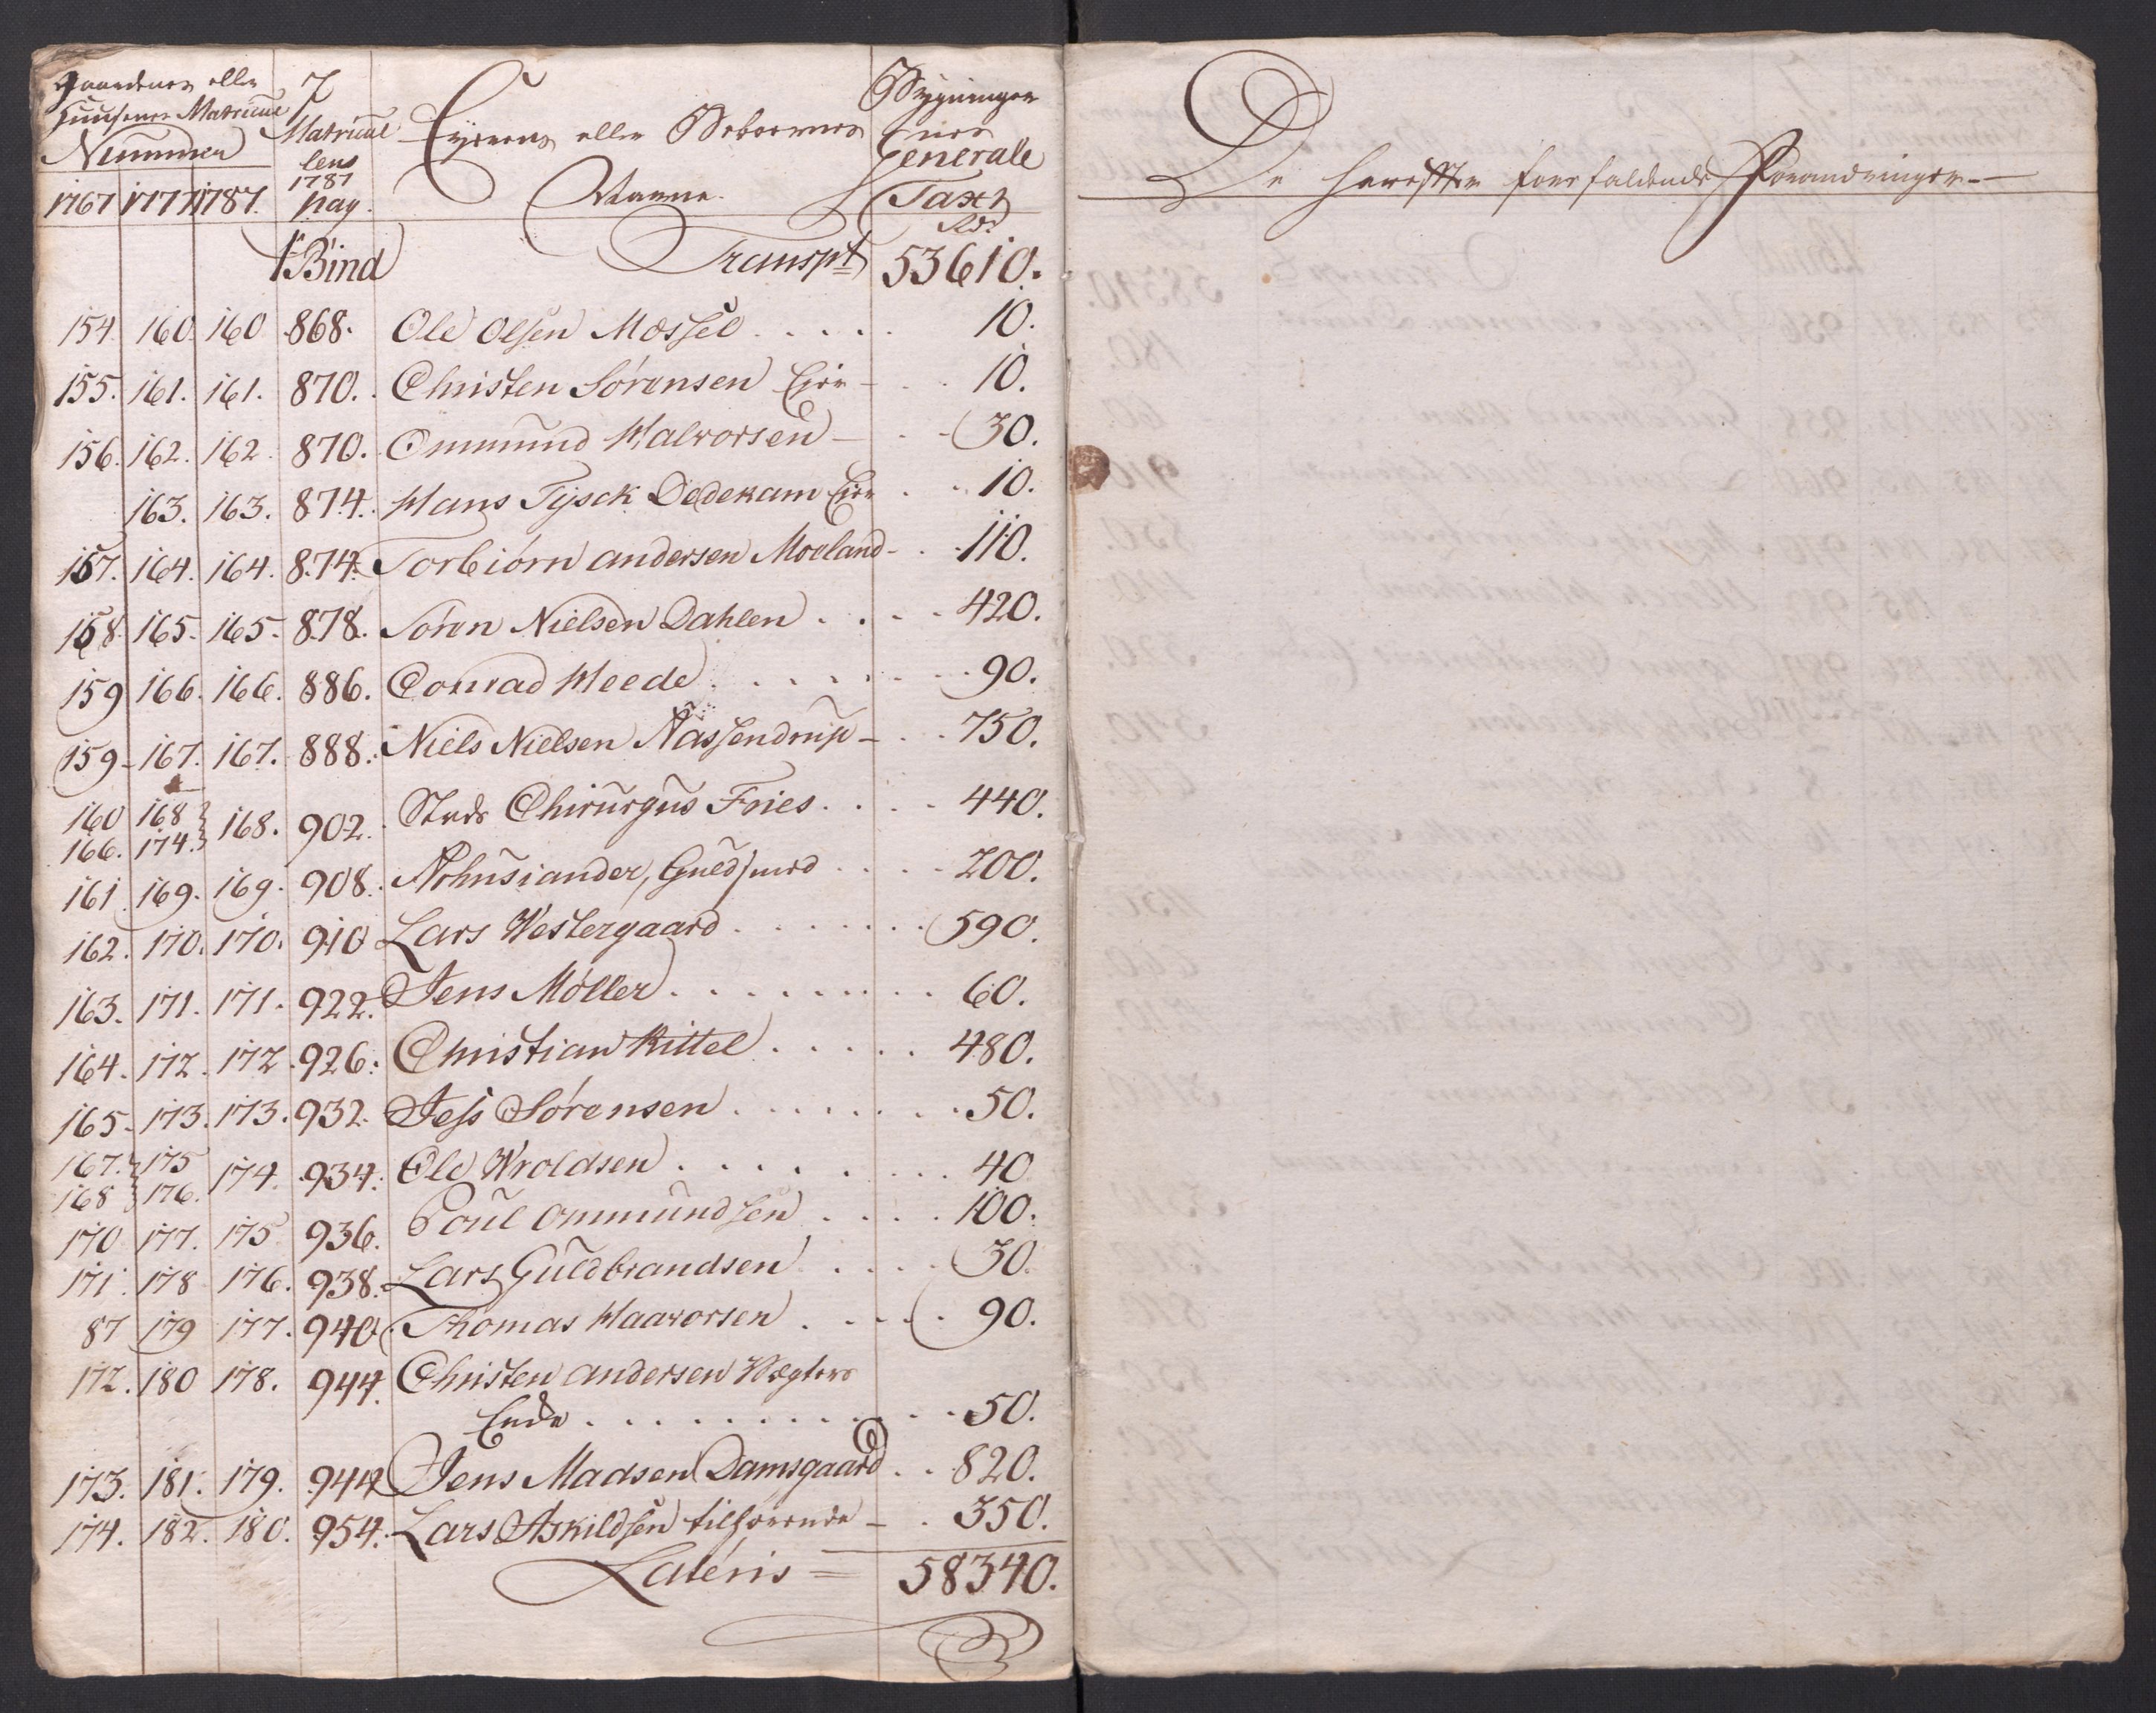 Gaardenes eller
Huusenes Matricul
Nummer
1767 1777 1787.
7
Matricul
lens
1787
pag.
Eyernes eller Beboernes
Navne.
Bygninger
nes
Generale
Taxt
Rdr
1te Bind Transpt 53610.
154. 160. 160 868. Ole Olsen Mossel . . . . . 10.
155. 161. 161. 870. Christen Sørensen Eier - . . 10.
156. 162. 162. 870. Ommund Halvorsen - . . 30.
163. 163. 874. Hans Tysck Dedekam Eier . . 10.
157. 164. 164. 874. Torbiørn Andersen Moeland - . . 110.
158. 165. 165. 878. Søren Nielsen Dahlen . . . . 420.
159 166. 166. 886. Conrad Heede . . . . . . . 90.
159 - 167. 167. 888. Niels Nielsen Nassendrup - . . 750.
160 168
166. 174. 168. 902. Stads Chirurgus Fries . . . . 440.
161. 169. 169. 908. Guldsmed . . . . 200.
162. 170. 170. 910 Lars Westergaard . . . . . . . 590.
163. 171. 171. 922. Jens Møller . . . . . . . . . 60.
164. 172. 172. 926. Christian Kittel . . . . . 480.
165. 173. 173. 932. Jess Sørensen . . . . . . . . 50.
167. 175
168 176. 174. 934. Ole Wroldsen . . . . . . . . 40
170 177. 175 936. Poul Ommundsen . . . . 100.
171. 178 176. 938. Lars Guldbrandsen . . . . . 30.
87 179 177. 940. Thomas Haavorsen . . . . . 90.
172. 180 178. 944. Christen Andersen Vægters
Enke . . . . . . . . . . . 50.
173. 181. 179. 944 Jens Madsen Damsgaard . . 820.
174. 182. 180. 954. Lars Askildsen tilhørende - . 350.
Lateris = 58340.
De herefter forefaldende Forandringer. -